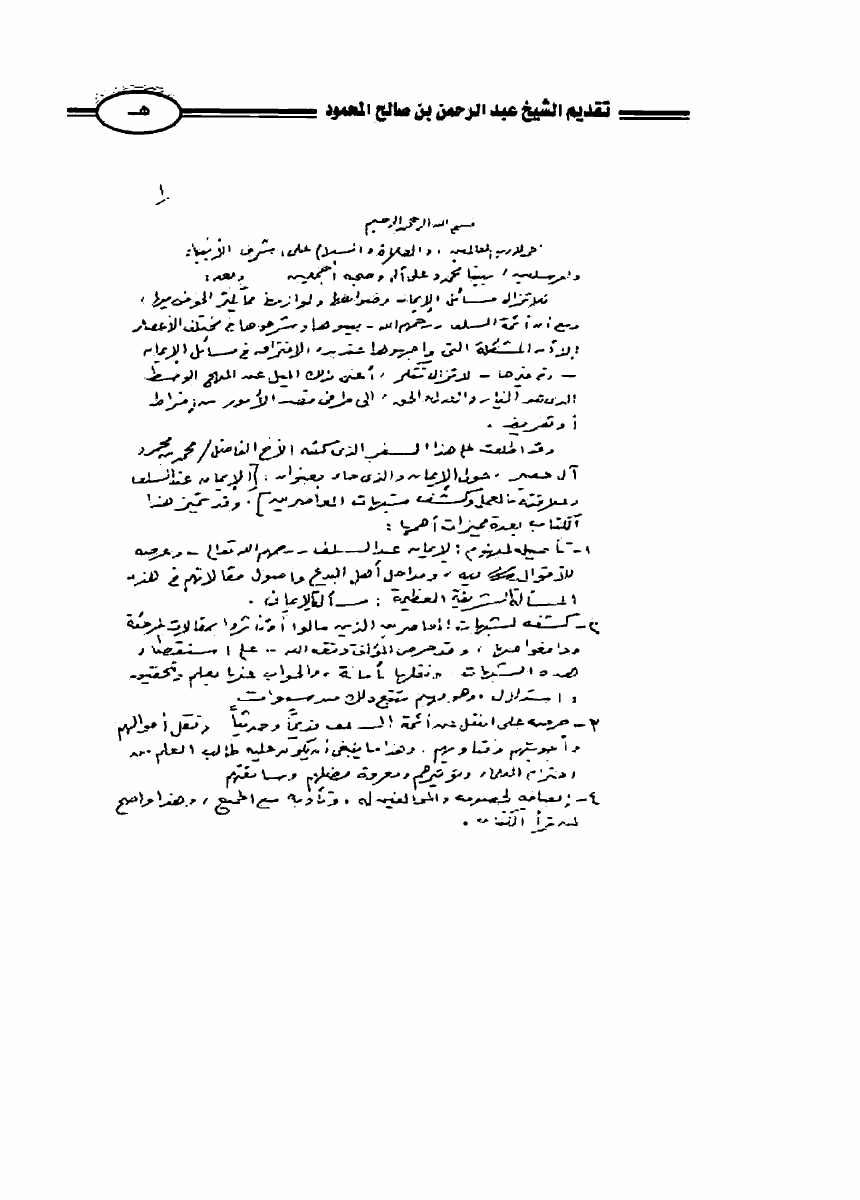 تقديم الشيخ عبد الرحمن بن صالح المحمود
هـ
١
بسم الله الرحمن الرحيم
الحمد لله رب العالمين ، والصلاة والسلام على أشرف الأنبياء
والمرسلين ، نبينا محمد وعلى آله وصحبه أجمعين وبعد :
فلا تزال مسائل الإيمان وضوابطه ولوازمه مما يكثر الخوض فيها ،
ومع أن أئمة السلف - رحمهم الله - بينوها وشرحوها في مختلف الأعصار
إلا أن المشكلة التي واجهوها عند بدء الافتراق في مسائل الإيمان
- وغيرها - لا تزال تتكرر ، أعني بذلك الميل عن المنهج الوسط
الذي هو الخيار والعدل الحق ، إلى طرفي قصد الأمور من إفراط
أو تفريط .
وقد اطلعت على هذا السفر الذي كتبه الأخ الفاضل / محمد بن محمود
آل خضير ، حول الإيمان والذي جاء بعنوان : [ الإيمان عند السلف
وعلاقته بالعمل وكشف شبهات المعاصرين ] . وقد تميز هذا
الكتاب بعدة مميزات أهمها :
١- تأصيله لمفهوم الإيمان عند السلف - رحمهم الله تعالى - وعرضه
للأقوال فيه ، ومداخل أهل البدع وأصول مقالاتهم في هذه
المسألة الشريفة العظيمة : مسألة الإيمان .
٢- كشفه لشبهات المعاصرين الذين مالوا أو تأثروا بمقالات المرجئة
ودافعوا عنها ، وقد حرص المؤلف وفقه الله - على استقصاء
هذه الشبهات ونقلها بأمانة ، والجواب عنها بعلم وتحقيق
واستدلال ، وهو مهم
٣- حرصه على النقل عن أئمة السلف قديماً وحديثاً ونقل أقوالهم
وأجوبتهم وفتاويهم . وهذا ما ينبغي أن يكون عليه طالب العلم من
احترام العلماء وتوقيرهم ومعرفة فضلهم وسابقتهم
٤- إنصافه لخصومه والمخالفين له ، وتأدبه مع الجميع ، وهذا واضح
لمن قرأ الكتاب .